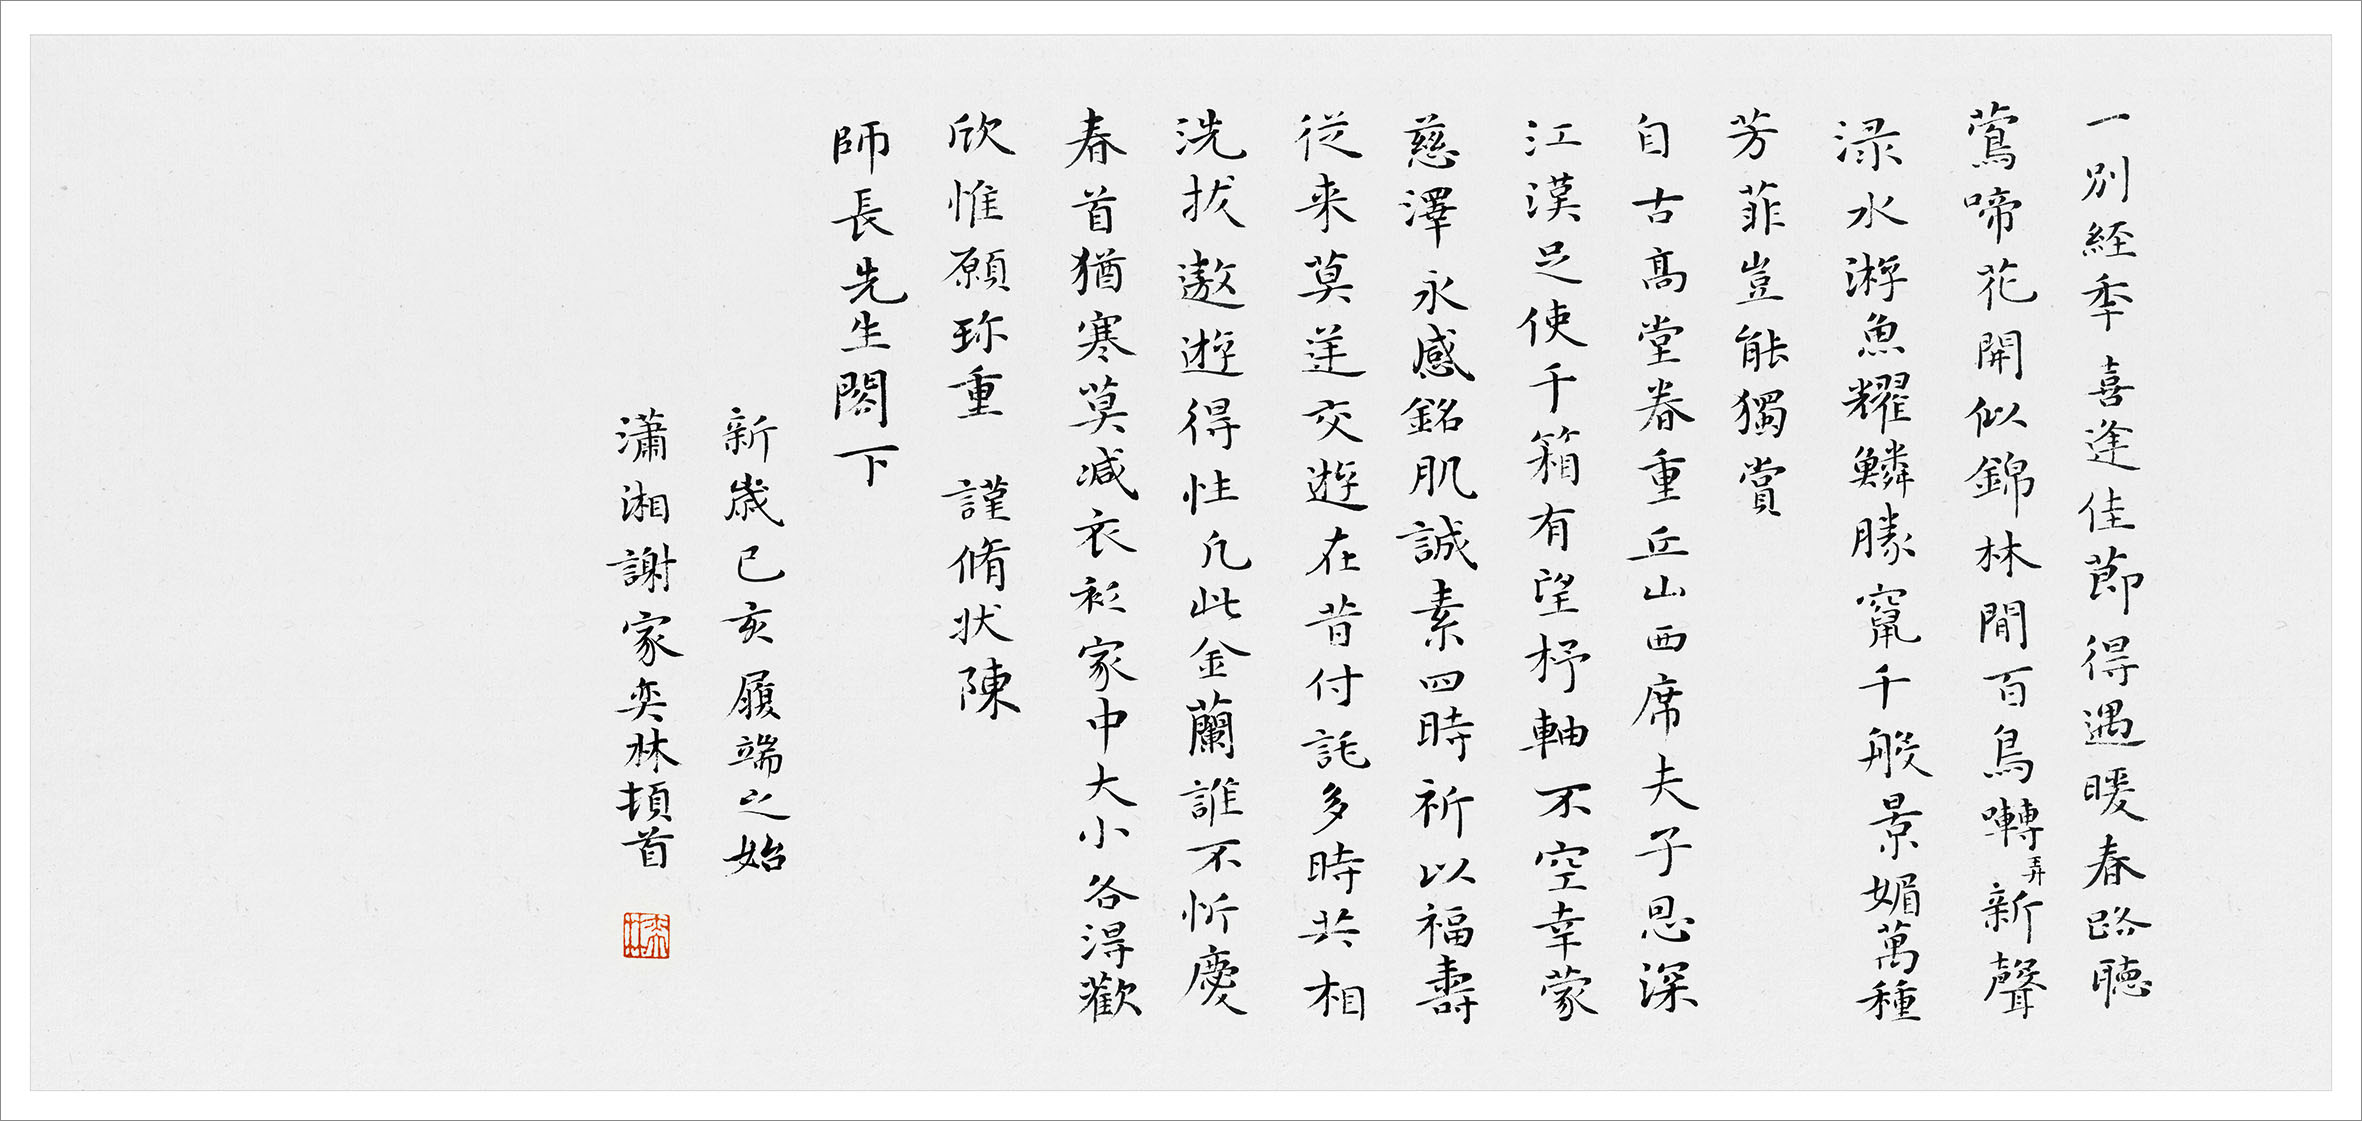 一別經年喜逢佳節得遇暖春路聽
鶯啼花開似錦林間百鳥囀弄新聲
淥水游魚耀鱗勝竄千般景媚萬種
芳菲豈能獨賞
自古高堂眷重丘山西席夫子恩深
江漢足使千箱有望杼軸不空幸蒙
慈澤永感銘肌誠素四時祈以福壽
從来莫逆交遊在昔付託多時共相
洗拔遨遊得性凡此金蘭誰不忻慶
春首猶寒莫減衣衫家中大小各得歡
欣惟願珎重 謹脩状陳
師長先生閣下
新歲己亥履端之始
瀟湘謝家奕林頓首
奕林